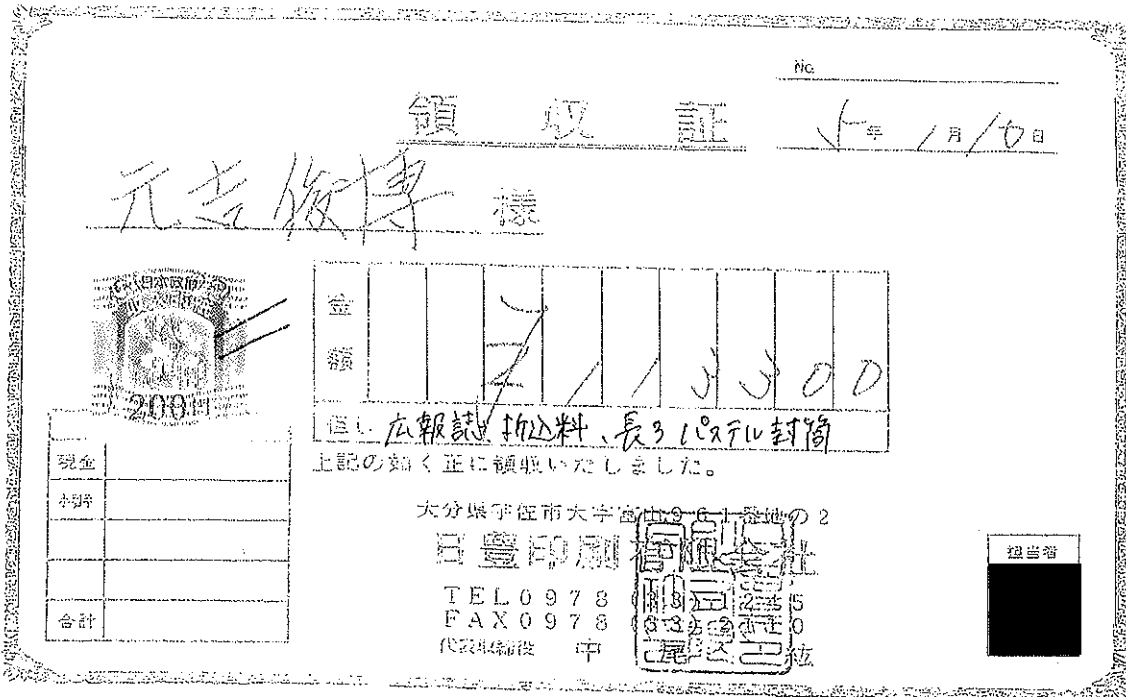 No.
領収証
5年 1月10日
元吉俊博 様
日本政府
200円
金額 ¥113300
但し 広報誌折込料、長3パステル封筒
上記の如く正に領収いたしました。
現金
小切手
合計
大分県宇佐市大字富山961番地の2
日豊印刷有限会社
TEL0978
FAX0978
代表取締役 中尾
担当者